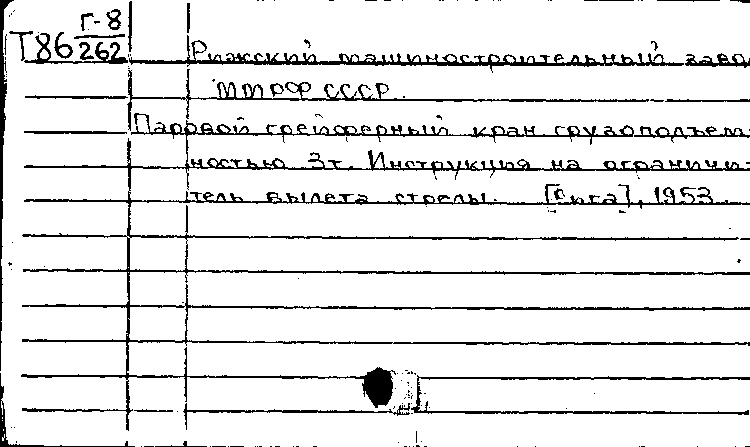 Г-8
Т86 262
Рижский машиностроительный завод
ММРФ СССР.
Паровой грейферный кран грузоподъем-
ностью 3т. Инструкция на ограничи-
тель вылета стрелы. [Рига], 1953.